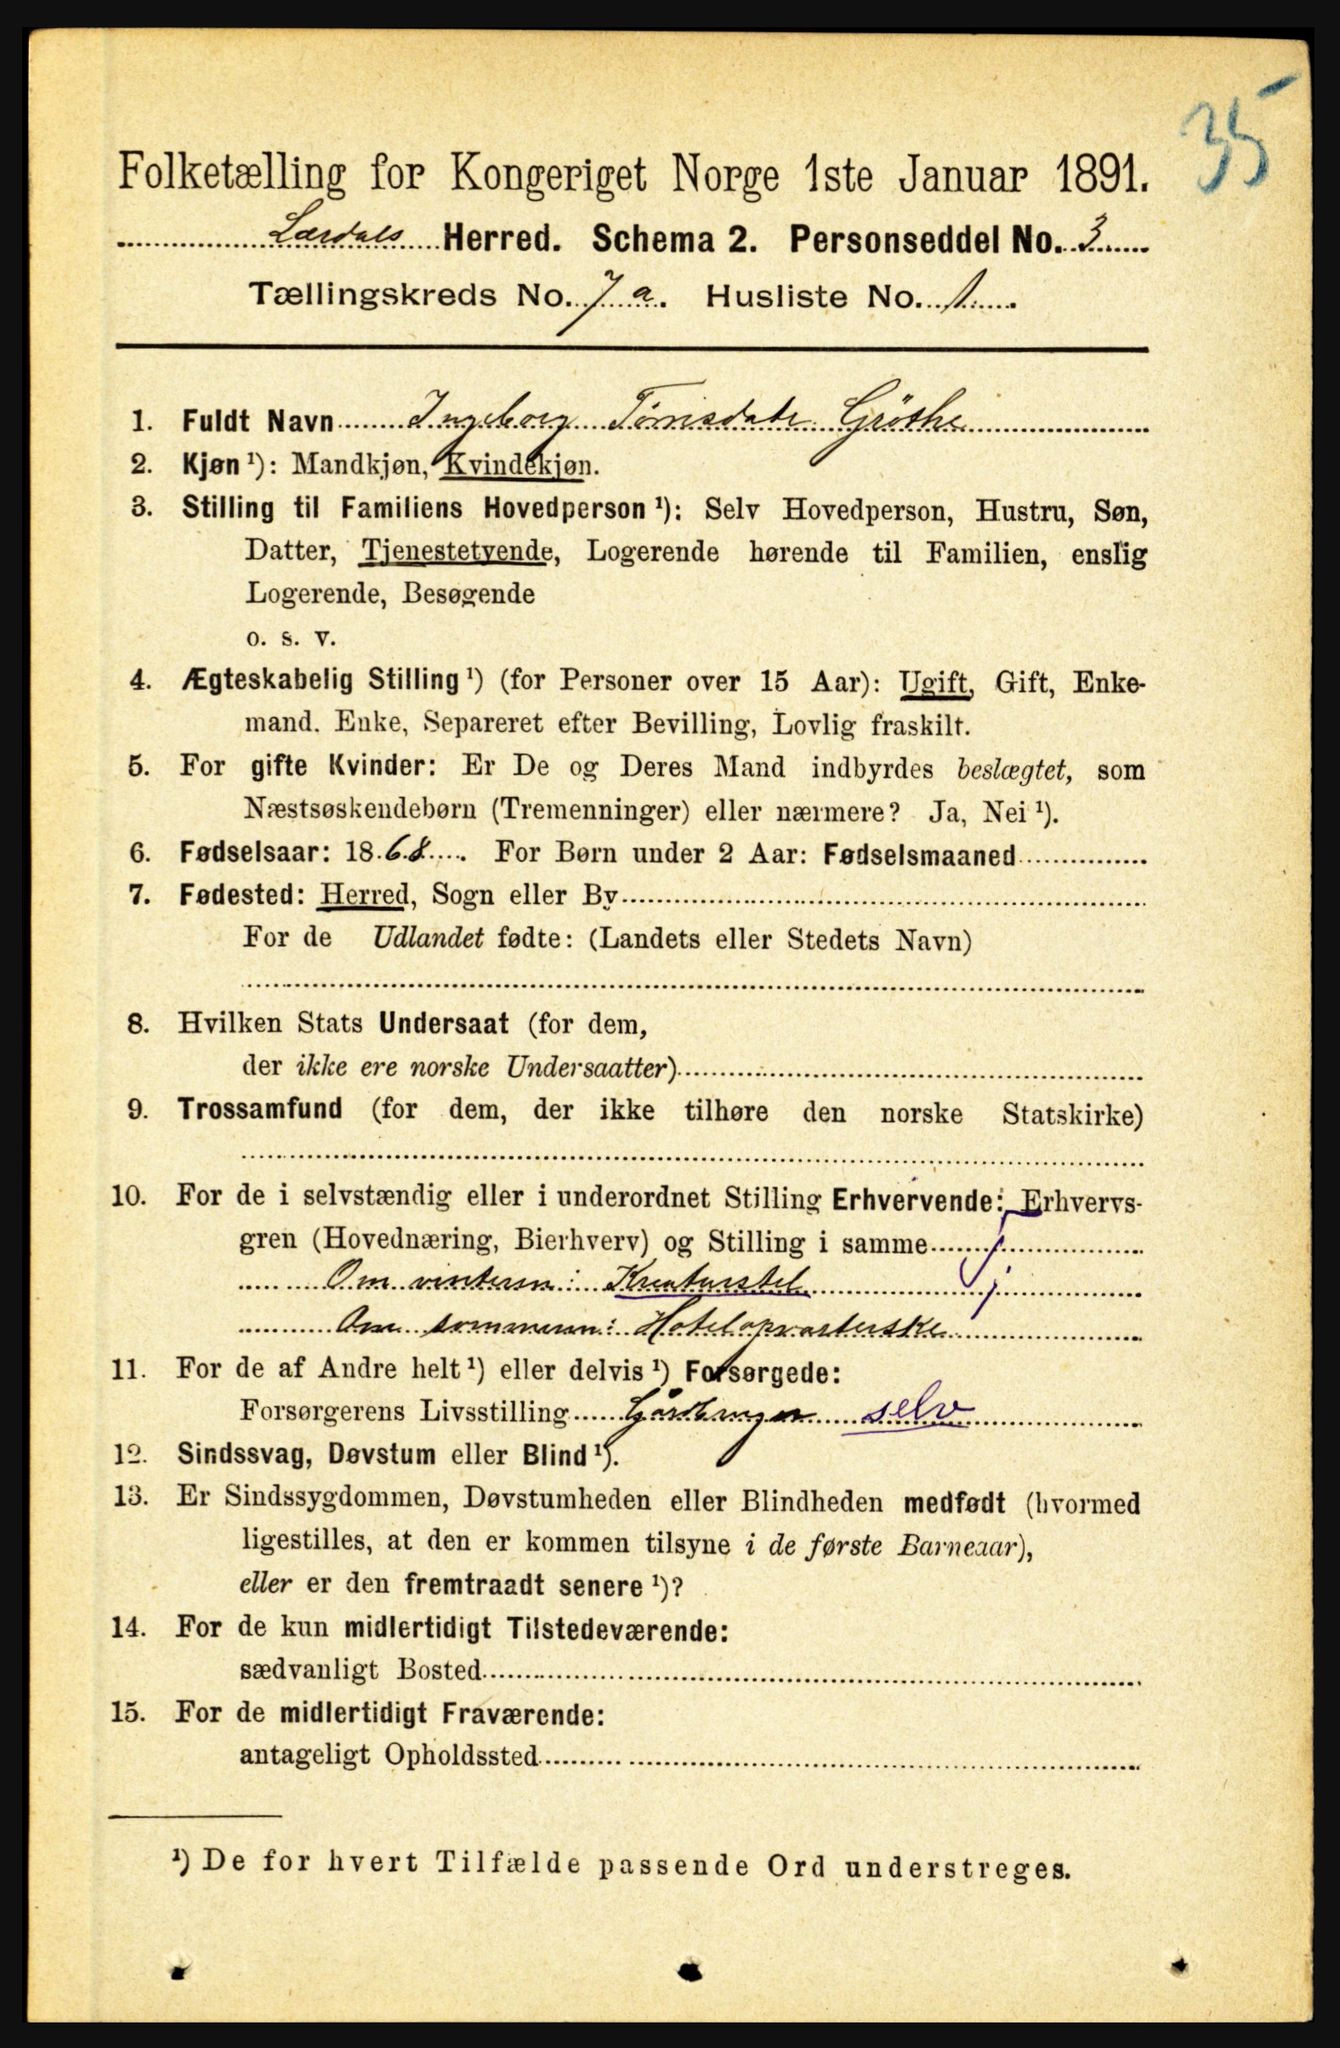 35
Folketælling for Kongeriget Norge 1ste Januar 1891.
Lærdals Herred. Schema 2. Personseddel No. 3
Tællingskreds No. 7 a. Husliste No. 1
1. Fuldt Navn Ingeborg Tørrisdatr Gröthe
2. Kjøn ¹): Mandkjøn, Kvindekjøn.
3. Stilling til Familiens Hovedperson ¹): Selv Hovedperson, Hustru, Søn,
Datter, Tjenestetyende, Logerende hørende til Familien, enslig
Logerende, Besøgende
o. s. v.
4. Ægteskabelig Stilling ¹) (for Personer over 15 Aar): Ugift, Gift, Enke-
mand. Enke, Separeret efter Bevilling, Lovlig fraskilt.
5. For gifte Kvinder: Er De og Deres Mand indbyrdes beslægtet, som
Næstsøskendebørn (Tremenninger) eller nærmere? Ja, Nei ¹).
6. Fødselsaar: 1868. For Børn under 2 Aar: Fødselsmaaned
7. Fødested: Herred, Sogn eller By
For de Udlandet fødte: (Landets eller Stedets Navn)
8. Hvilken Stats Undersaat (for dem,
der ikke ere norske Undersaatter)
9. Trossamfund (for dem, der ikke tilhøre den norske Statskirke)
10. For de i selvstændig eller i underordnet Stilling Erhvervende: Erhvervs-
gren (Hovednæring, Bierhverv) og Stilling i samme j
Om vinteren: Kreaturstel j
Om sommeren: Hotelopvarterske
11. For de af Andre helt ¹) eller delvis ¹) Forsørgede:
Forsørgerens Livsstilling Gårdbruger selv
12. Sindssvag, Døvstum eller Blind ¹).
13. Er Sindssygdommen, Døvstumheden eller Blindheden medfødt (hvormed
ligestilles, at den er kommen tilsyne i de første Barneaar),
eller er den fremtraadt senere ¹)?
14. For de kun midlertidigt Tilstedeværende:
sædvanligt Bosted
15. For de midlertidigt Fraværende:
antageligt Opholdssted
¹) De for hvert Tilfælde passende Ord understreges.